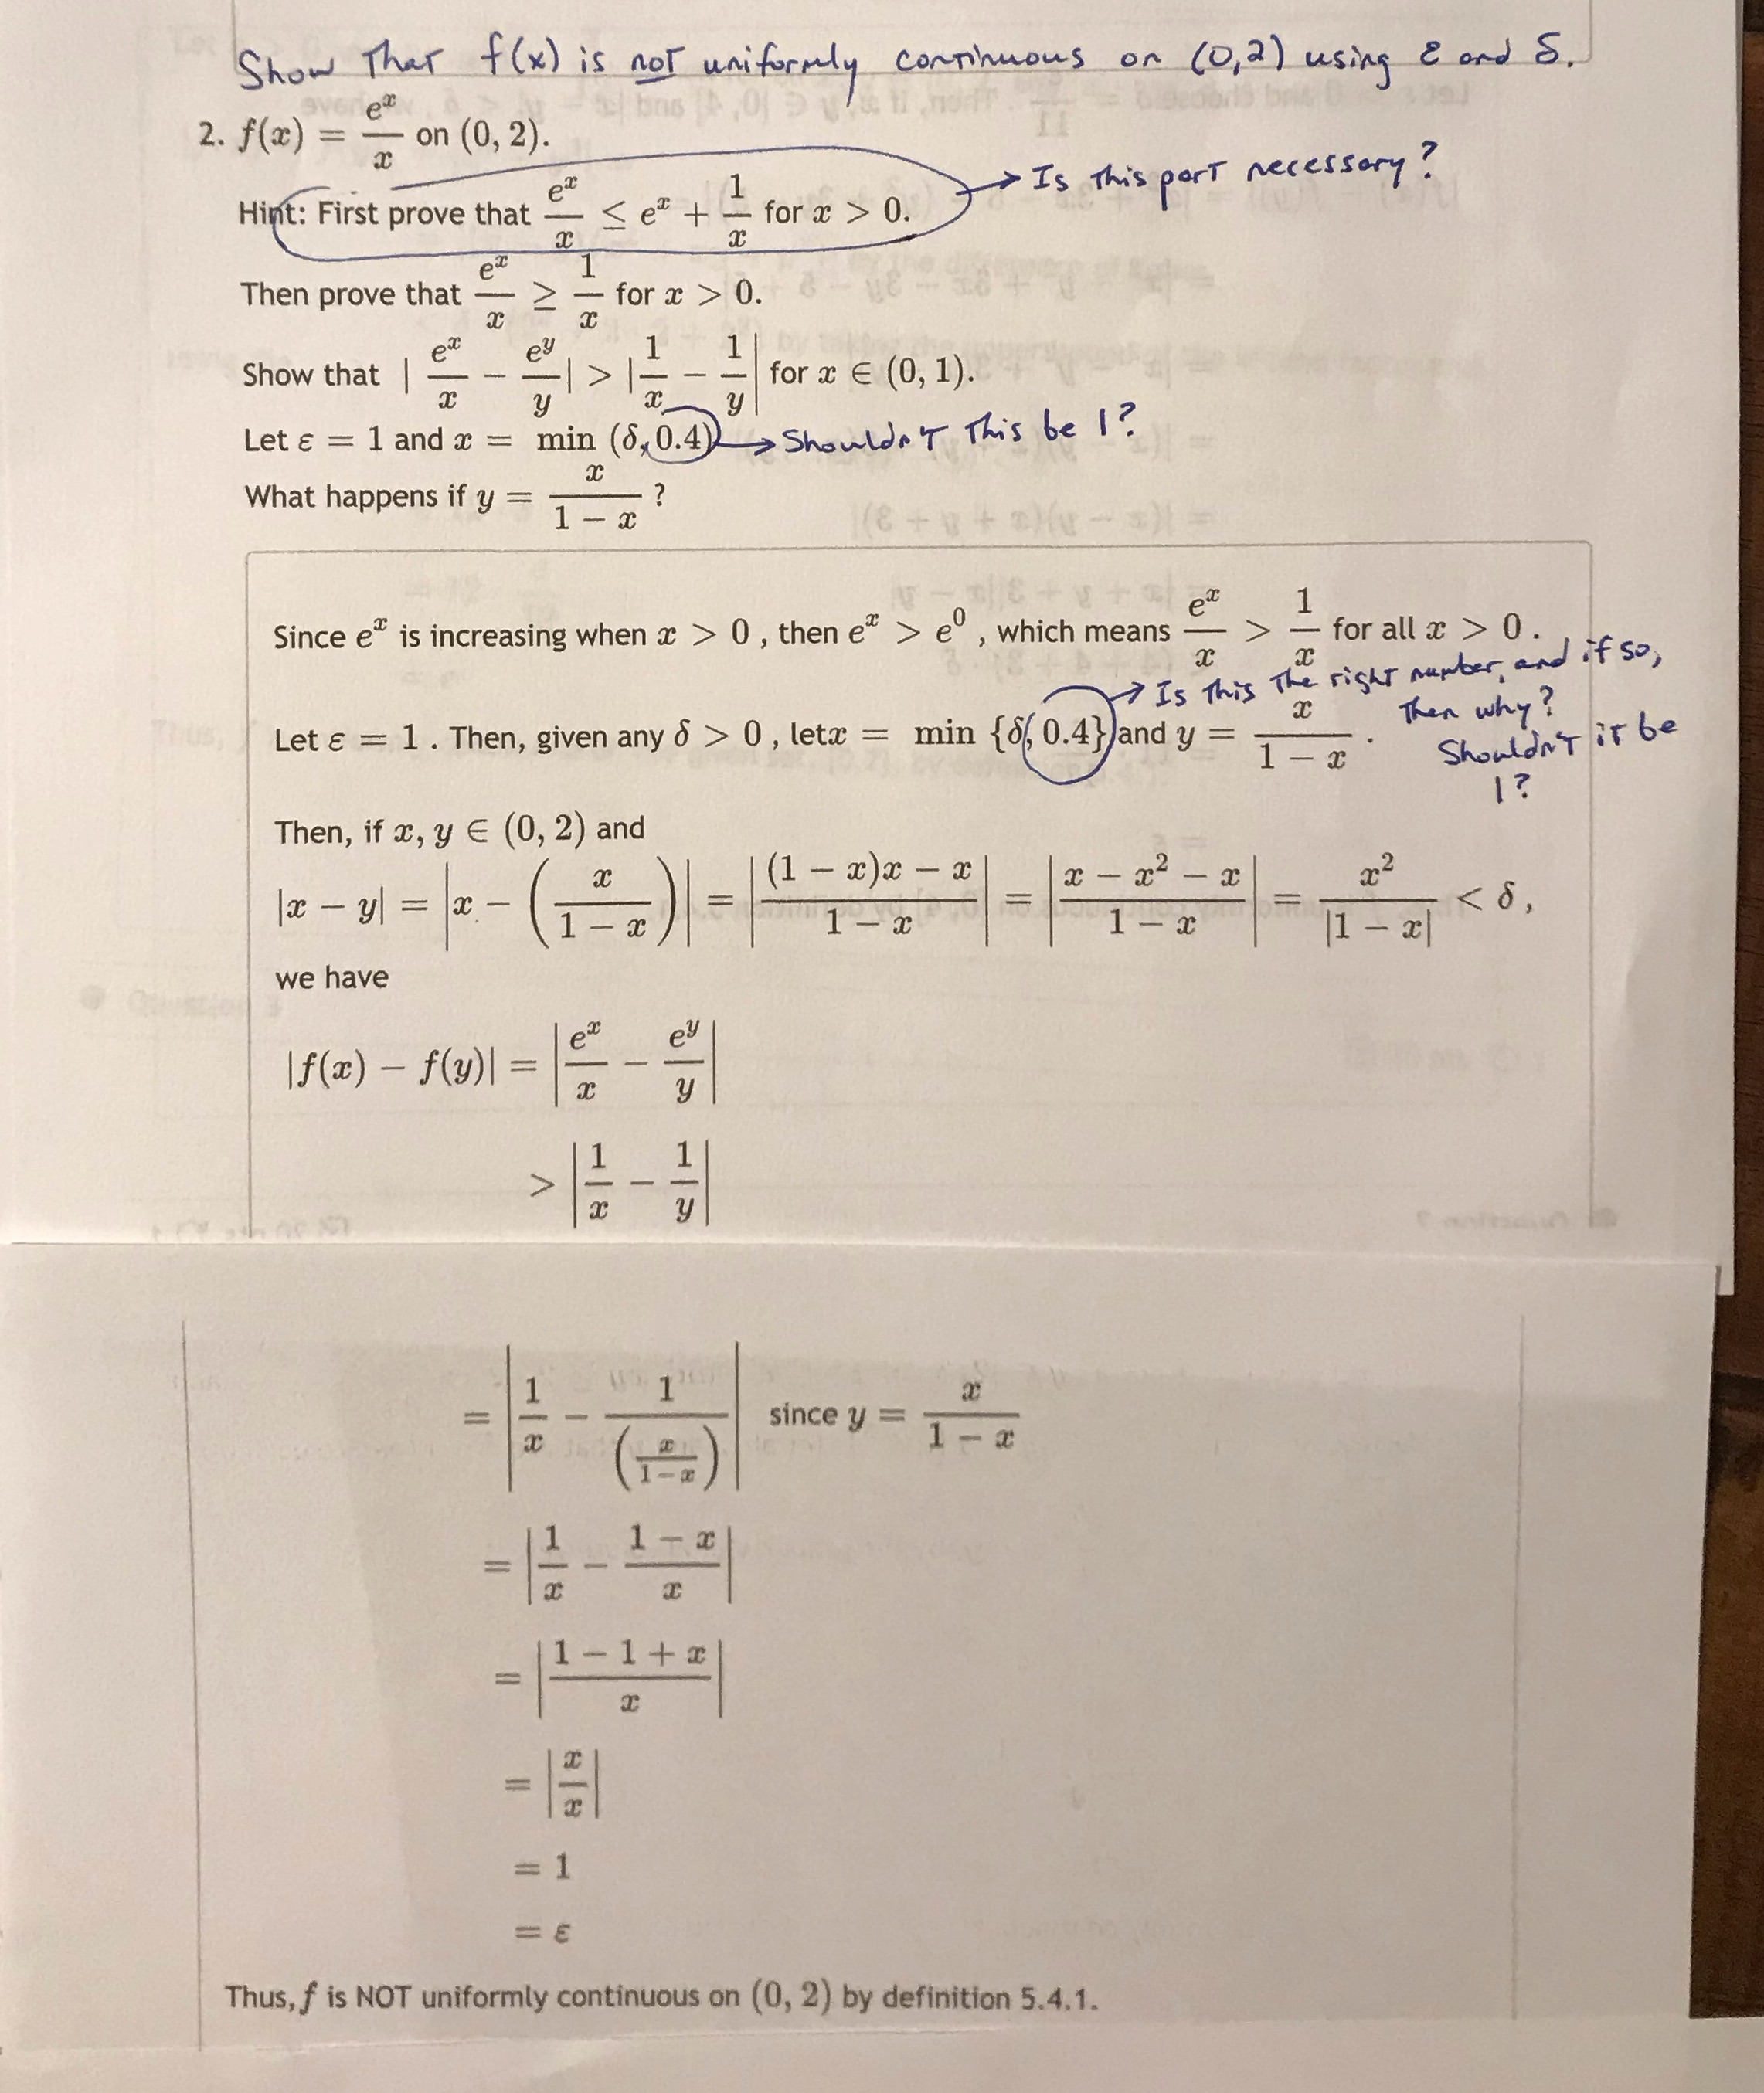 Show that f(x) is not uniformly continuous on (0,2) using ε and δ.
2. f(x) = e^x/x on (0, 2).
Hint: First prove that e^x/x ≤ e^x + 1/x for x > 0.
→ Is this part necessary?
Then prove that e^x/x ≥ 1/x for x > 0.
Show that |e^x/x − e^y/y| > |1/x − 1/y| for x ∈ (0, 1).
Let ε = 1 and x = min (δ, 0.4)
→ Shouldn't this be 1?
What happens if y = x/(1 − x) ?
Since e^x is increasing when x > 0 , then e^x > e^0 , which means e^x/x > 1/x for all x > 0 .
→ Is this the right number, and if so,
then why?
Shouldn't it be
1?
Let ε = 1 . Then, given any δ > 0 , letx = min {δ, 0.4} and y = x/(1 − x) .
Then, if x, y ∈ (0, 2) and
|x − y| = |x − (x/(1 − x))| = |((1 − x)x − x)/(1 − x)| = |(x − x² − x)/(1 − x)| = x²/|1 − x| < δ ,
we have
|f(x) − f(y)| = |e^x/x − e^y/y|
> |1/x − 1/y|
= |1/x − 1/(x/(1−x))| since y = x/(1 − x)
= |1/x − (1 − x)/x|
= |(1 − 1 + x)/x|
= |x/x|
= 1
= ε
Thus, f is NOT uniformly continuous on (0, 2) by definition 5.4.1.